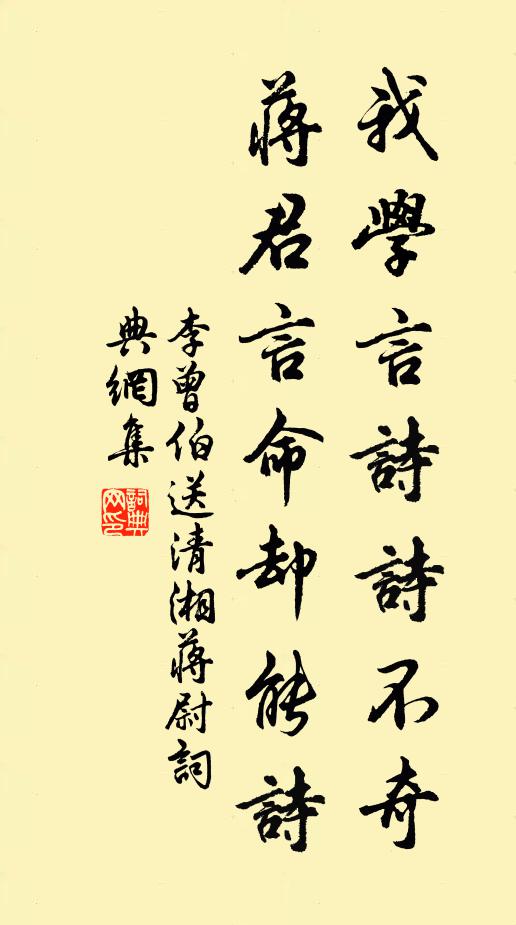 我學言詩詩不奇
蔣君言命却能詩
李曾伯送清湘蔣尉詞
典網集
詞典
网印